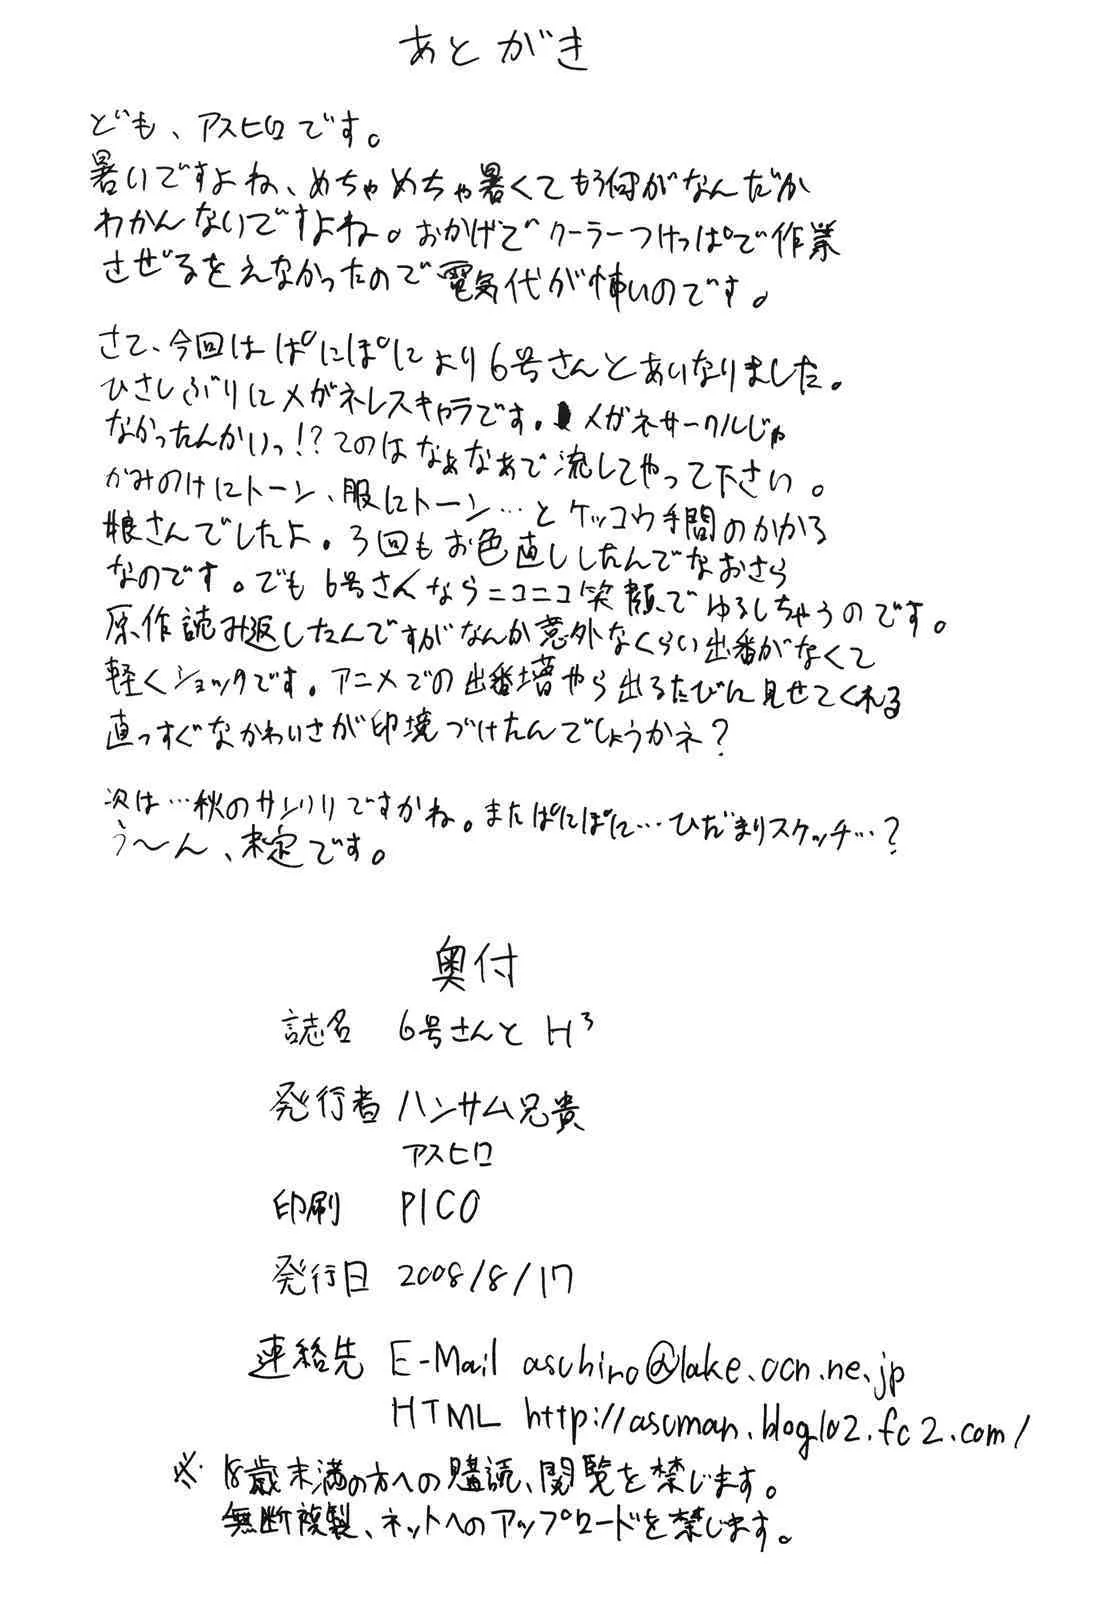 あとがき
ども、アスヒロです。
暑いですよね、めちゃめちゃ暑くてもう何がなんだか
わかんないですよね。おかげでクーラーつけっぱで作業
させざるをえなかったので電気代が怖いのです。
さて、今回はぱにぽにより6号さんとあいなりました。
ひさしぶりにメガネレスキャラです。メガネサークルじゃ
なかったんかいっ!?てのはなぁなぁで流してやって下さい。
かみのけにトーン、服にトーン…とケッコウ手間のかかる
娘さんでしたよ。3回もお色直ししたんでなおさら
なのです。でも6号さんならニコニコ笑顔でゆるしちゃうのです。
原作読み返したんですがなんか意外なくらい出番がなくて
軽くショックです。アニメでの出番増やら出るたびに見せてくれる
直っすぐなかわいさが印境づけたんでしょうかネ?
次は…秋のサンクリですかね。またぱにぽに…ひだまりスケッチ…?
う〜ん、未定です。
奥付
誌名 6号さんとH³
発行者 ハンサム兄貴
アスヒロ
印刷 PICO
発行日 2008/8/17
連絡先 E-Mail asuhiro@lake.ocn.ne.jp
HTML http://asuman.blog102.fc2.com/
※ 18歳未満の方への購読、閲覧を禁じます。
無断複製、ネットへのアップロードを禁じます。